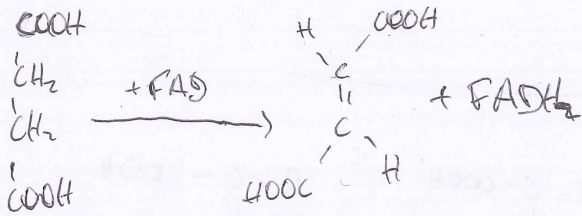 COOH
CH2
CH2
COOH
+FAD
H COOH
C
C
HOOC H
+ FADH2